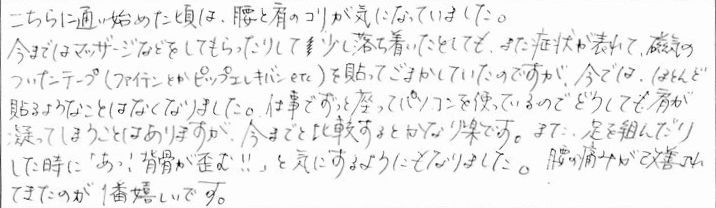 こちらに通い始めた頃は、腰と肩のコリが気になっていました。
今まではマッサージなどをしてもらったりして少し落ち着いたとしても、また症状が表れて、磁気の
ついたテープ(ファイテンとかピップエレキバンetc)を貼ってごまかしていたのですが、今では、ほとんど
貼るようなことはなくなりました。仕事でずっと座ってパソコンを使っているのでどうしても肩が
凝ってしまうことはありますが、今までと比較するとかなり楽です。また、足を組んだり
した時に「あっ!背骨が歪む!!」と気にするようにもなりました。腰の痛みが改善され
てきたのが1番嬉しいです。